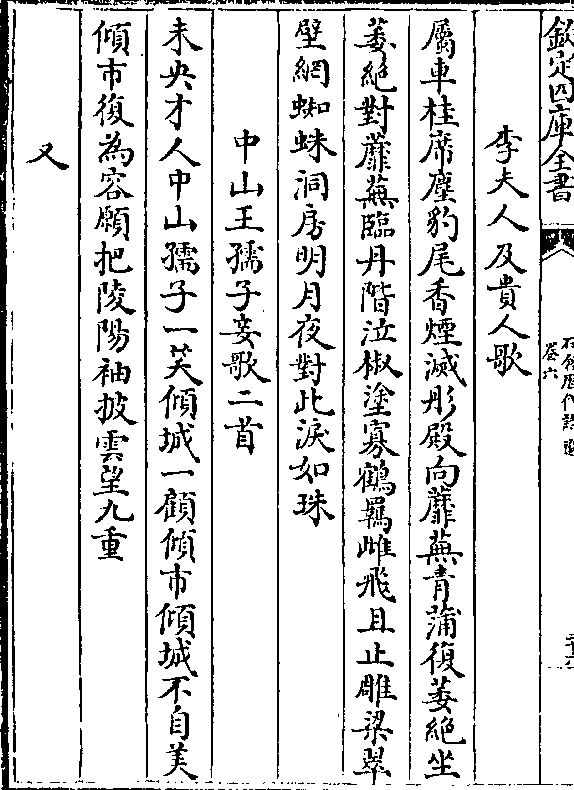 欽定四庫全書
石倉歷代詩選
卷六
李夫人及貴人歌
屬車桂席塵豹尾香煙滅彤殿向蘼蕪青蒲復萎絶坐
萎絶對蘼蕪臨丹階泣椒塗寡鶴羈雌飛且止雕梁翠
壁網蜘蛛洞房明月夜對此淚如珠
中山王孺子妾歌二首
未央才人中山孺子一笑傾城一顧傾市傾城不自美
傾市復為容願把陵陽袖披雲望九重
又